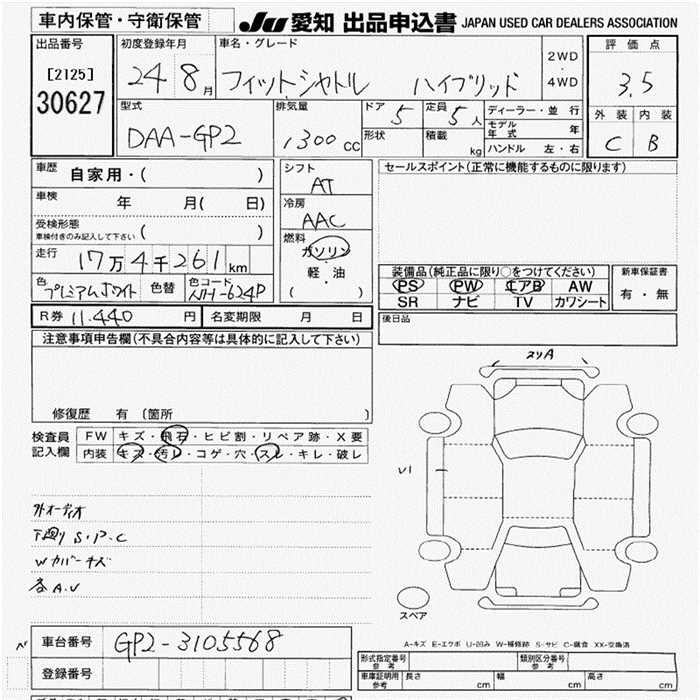 車内保管・守衛保管 JU 愛知 出品申込書 JAPAN USED CAR DEALERS ASSOCIATION
出品番号 初度登録年月 車名・グレード 評価点
[2125] 24 8月 フィットシャトル ハイブリッド 2WD・4WD 3.5
30627 型式 排気量 ドア 5 定員 5人 ディーラー・並行 外装 内装
DAA-GP2 1300cc 形状 積載 kg モデル年式 年 C B
ハンドル 左・右
車歴 自家用・( ) シフト AT セールスポイント(正常に機能するものに限ります)
車検 年 月( 日) 冷房 AAC
受検形態 ( )
車検付きのみ記入して下さい
燃料 ガソリン・軽・油 ( )
走行 17万4千261km
装備品(純正品に限り○をつけてください) 新車保証書
色 プレミアムホワイト 色替 色コード NH-624P PS PW エアB AW 有・無
SR ナビ TV カワシート
R券 11.440円 名変期限 月 日 後日品
注意事項申告欄(不具合内容等は具体的に記入して下さい)
修復歴 有 〔箇所 〕
スリA
検査員記入欄 FW キズ・飛石・ヒビ割・リペア跡・X要
内装 キズ・汚レ・コゲ・穴・スレ・キレ・破レ
U1
外オーディオ
下廻りS・P・C
Wカバーキズ
各A.U
スペア
車台番号 GP2-3105568
A-キズ E-エクボ U-凹み W-補修跡 S-サビ C-腐食 XX-交換済
登録番号
形式指定番号 参考 類別区分番号 参考
車庫証明用 参考 長さ cm 幅 cm 高さ cm